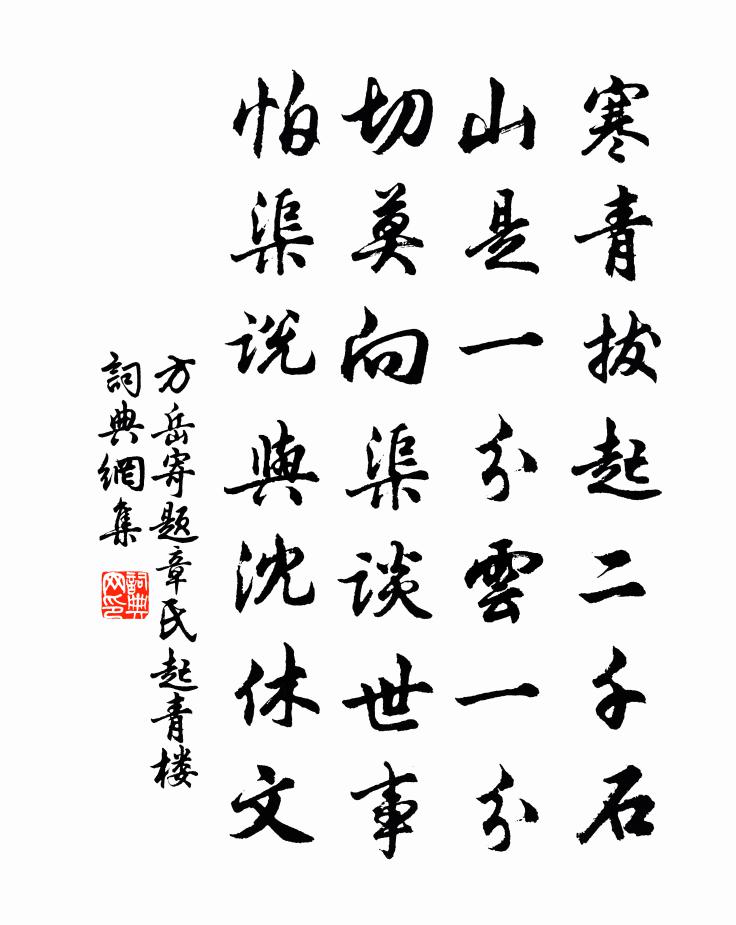 寒青拔起二千石
山是一分雲一分
切莫向渠談世事
怕渠說與沈休文
方岳寄題章氏起青楼
詞典網集
詞典
网印